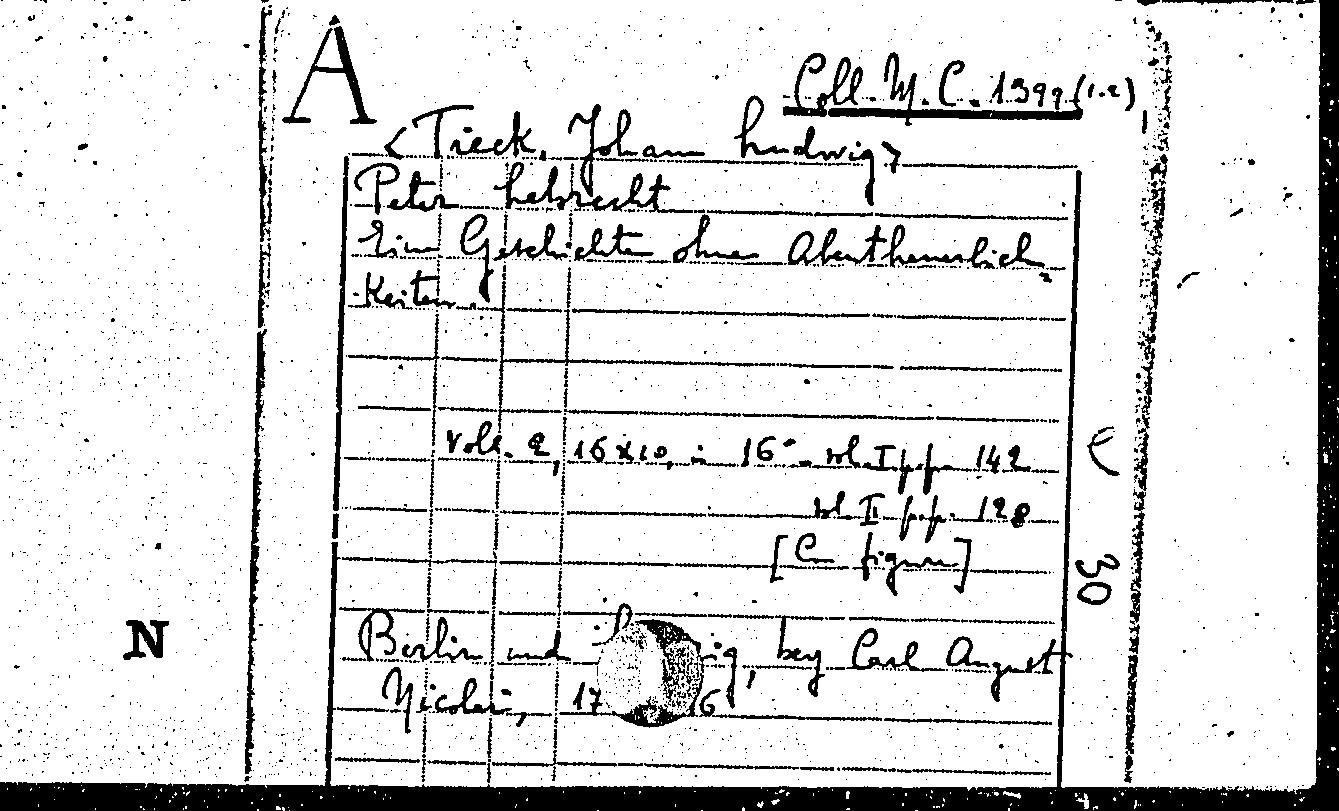 A
Coll. M. C. 1399 (1.2)
<Tieck, Johann Ludwig>
Peter Lebrecht
Eine Geschichte ohne Abentheuerlich-
Keiten.
voll. 2, 16x10, in 16° vol. I pp. 142
vol. II pp. 128
[Con figure]
C
30
N
Berlin und ig, bey Carl August
Nicolai, 17 6